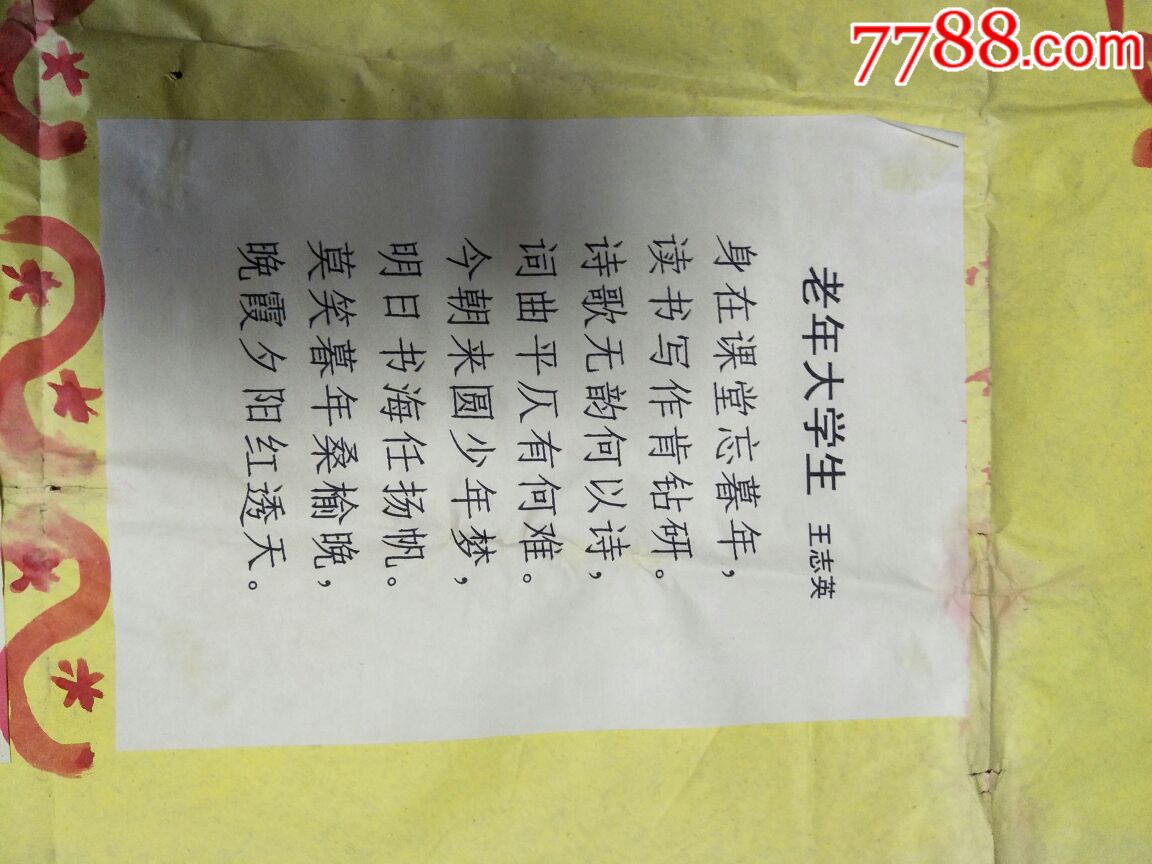 7788.com
老年大学生 王志英
身在课堂忘暮年，
读书写作肯钻研。
诗歌无韵何以诗，
词曲平仄有何难。
今朝来圆少年梦，
明日书海任扬帆。
莫笑暮年桑榆晚，
晚霞夕阳红透天。